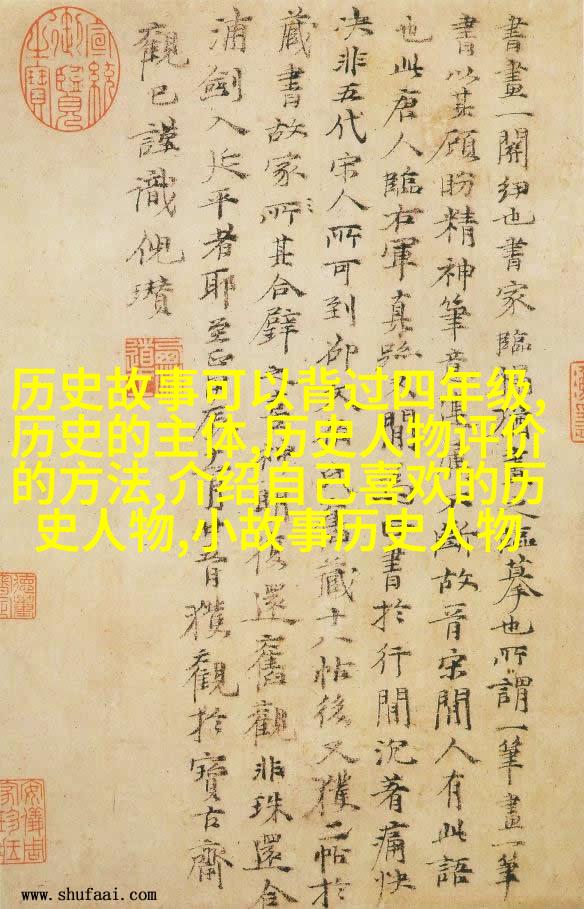 書畫一關紐也書家臨摹也所謂一筆畫一筆
書以其顧盼精神筆意屬不斷故晉宋間人有此語
也此唐人臨右軍真跡間書於行間沉著痛快
決非五代宋人所可到已舊藏十八帖後又獲二帖於
藏書故家所其合璧後還舊觀非珠還合
浦劍入延平者耶至正獲觀於寶古齋
觀已謹識倪瓚
宣統御覽之寶
历史故事可以背过四年级,
历史的主体,历史人物评价
的方法,介绍自己喜欢的历
史人物,小故事历史人物
www.shufaai.com